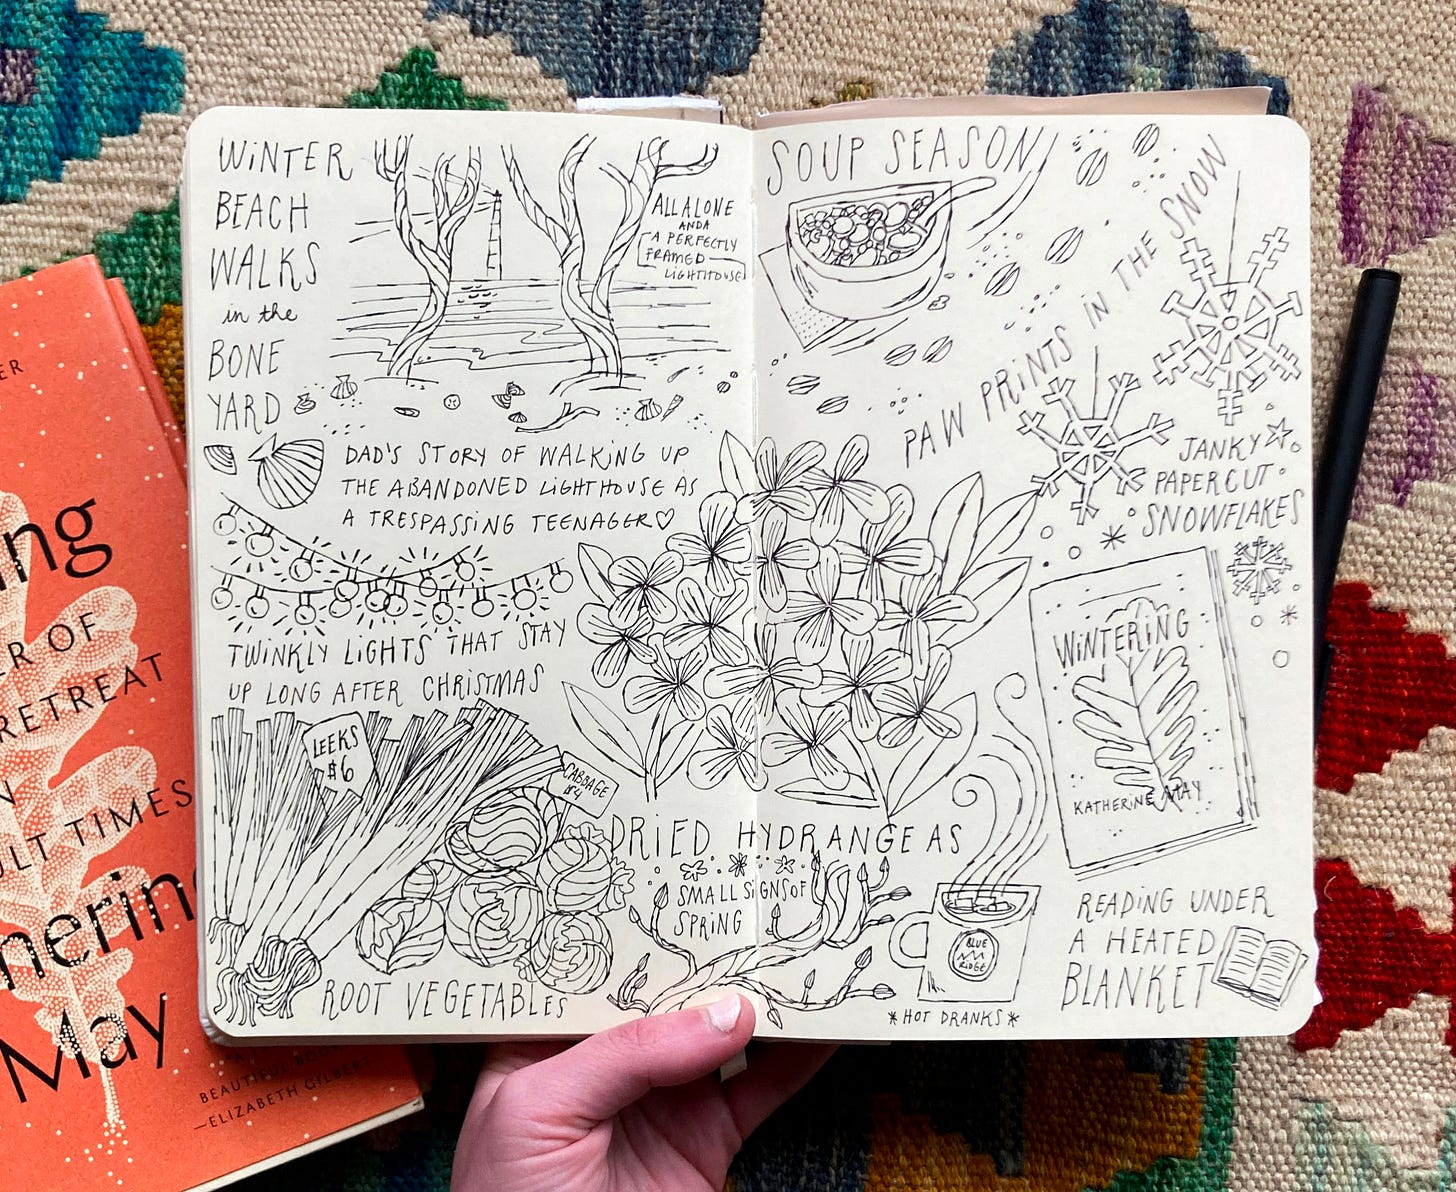 WINTER
BEACH
WALKS
in the
BONE
YARD
ALL ALONE
AND A
A PERFECTLY
FRAMED
LIGHTHOUSE
DAD'S STORY OF WALKING UP
THE ABANDONED LIGHTHOUSE AS
A TRESPASSING TEENAGER♡
TWINKLY LIGHTS THAT STAY
UP LONG AFTER CHRISTMAS
LEEKS
$6
CABBAGE
$4
ROOT VEGETABLES
DRIED HYDRANGEAS
SMALL SIGNS OF
SPRING
SOUP SEASON
PAW PRINTS IN THE SNOW
JANKY
PAPERCUT
SNOWFLAKES
WINTERING
KATHERINE MAY
BLUE
RIDGE
*HOT DRANKS*
READING UNDER
A HEATED
BLANKET
ER
ng
R OF
RETREAT
N
ULT TIMES
herine
May
BEAUTIFUL BOOK
—ELIZABETH GILBERT